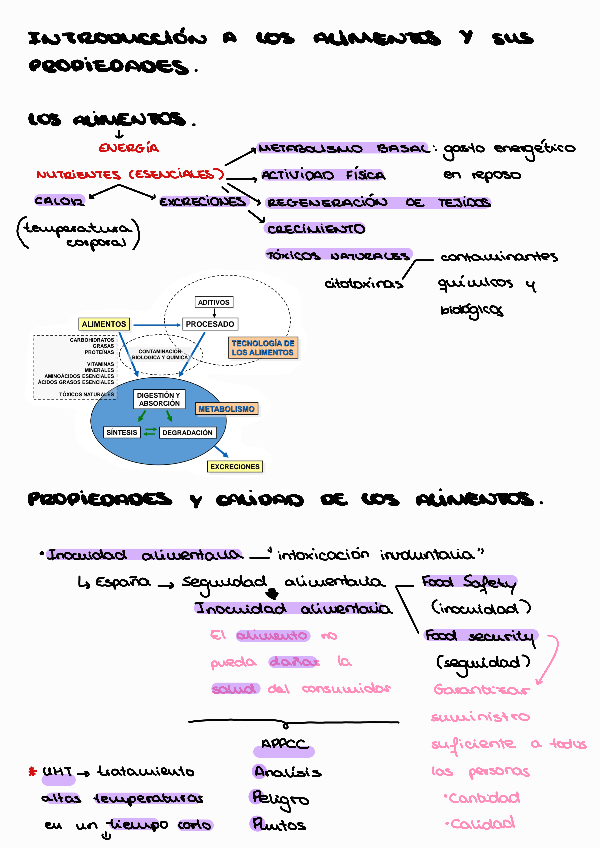 INTRODUCCIÓN A LOS ALIMENTOS Y SUS
PROPIEDADES.
LOS ALIMENTOS.
ENERGÍA
NUTRIENTES (ESENCIALES)
CALOR
EXCRECIONES
(temperatura
corporal)
METABOLISMO BASAL: gasto energético
en reposo
ACTIVIDAD FÍSICA
REGENERACIÓN DE TEJIDOS
CRECIMIENTO
TÓXICOS NATURALES
citotoxinas
contaminantes
químicos y
biológicos
ADITIVOS
ALIMENTOS
PROCESADO
TECNOLOGÍA DE
LOS ALIMENTOS
CARBOHIDRATOS
GRASAS
PROTEÍNAS
VITAMINAS
MINERALES
AMINOÁCIDOS ESENCIALES
ÁCIDOS GRASOS ESENCIALES
TÓXICOS NATURALES
CONTAMINACIÓN
BIOLOGICA Y QUÍMICA
DIGESTIÓN Y
ABSORCIÓN
METABOLISMO
SÍNTESIS
DEGRADACIÓN
EXCRECIONES
PROPIEDADES Y CALIDAD DE LOS ALIMENTOS.
• Inocuidad alimentaria — "intoxicación involuntaria"
↳ España → Seguridad alimentaria
Food Safety
(inocuidad)
Inocuidad alimentaria
Food security
(seguridad)
El alimento no
pueda dañar la
salud del consumidor
Garantizar
suministro
suficiente a todas
las personas
• Cantidad
• Calidad
APPCC
Analisis
Peligro
Puntos
* UHT → tratamiento
altas temperaturas
en un tiempo corto